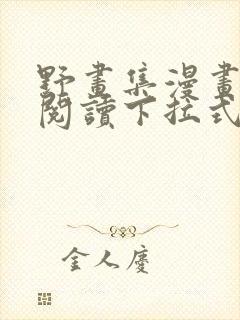 野畫集漫畫
閱讀下拉式
金人慶